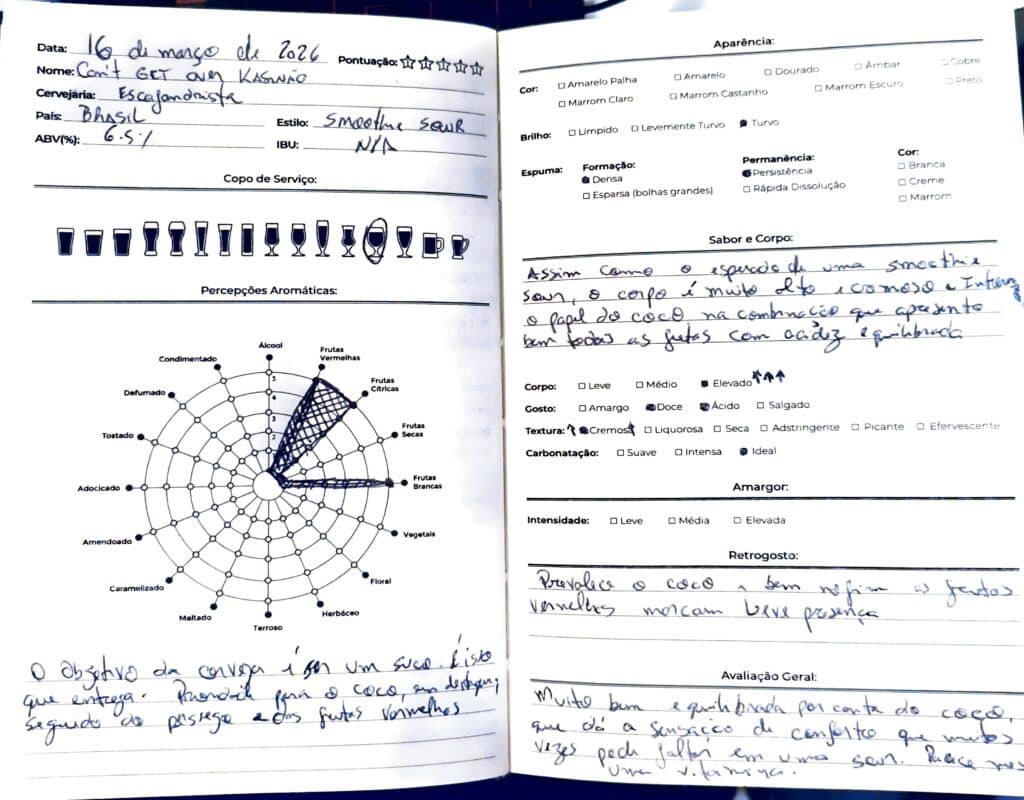 Data: 16 de março de 2026 Pontuação:
Nome: Can't GET OVER
Cervejaria: Escafandrista
País: BRASIL Estilo: Smoothie SOUR
ABV(%): 6.5% IBU: N/A
Copo de Serviço:
Percepções Aromáticas:
Álcool
Frutas Vermelhas
Frutas Cítricas
Frutas Secas
Frutas Brancas
Vegetais
Floral
Herbáceo
Terroso
Maltado
Caramelizado
Amendoado
Adocicado
Tostado
Defumado
Condimentado
5
4
3
2
O objetivo da cerveja é ser um suco. É isto
que entrega. para o coco, em destaque,
seguido do pêssego e das frutas vermelhas
Aparência:
Cor: Amarelo Palha Amarelo Dourado Âmbar Cobre
Marrom Claro Marrom Castanho Marrom Escuro Preto
Brilho: Límpido Levemente Turvo Turvo
Espuma: Formação: Permanência: Cor:
Densa Persistência Branca
Esparsa (bolhas grandes) Rápida Dissolução Creme
Marrom
Sabor e Corpo:
Assim como o esperado de uma smoothie
sour, o corpo é muito alto e cremoso e
o papel do coco na combinação que apresenta
bem todas as frutas com acidez equilibrada
Corpo: Leve Médio Elevado
Gosto: Amargo Doce Ácido Salgado
Textura: Cremosa Liquorosa Seca Adstringente Picante Efervescente
Carbonatação: Suave Intensa Ideal
Amargor:
Intensidade: Leve Média Elevada
Retrogosto:
Prevalece o coco e bem no fim as frutas
vermelhas marcam leve presença
Avaliação Geral:
Muito bem equilibrada por conta do coco,
que dá a sensação de conforto que muitas
vezes pode faltar em uma sour. Parece
uma vitamina.